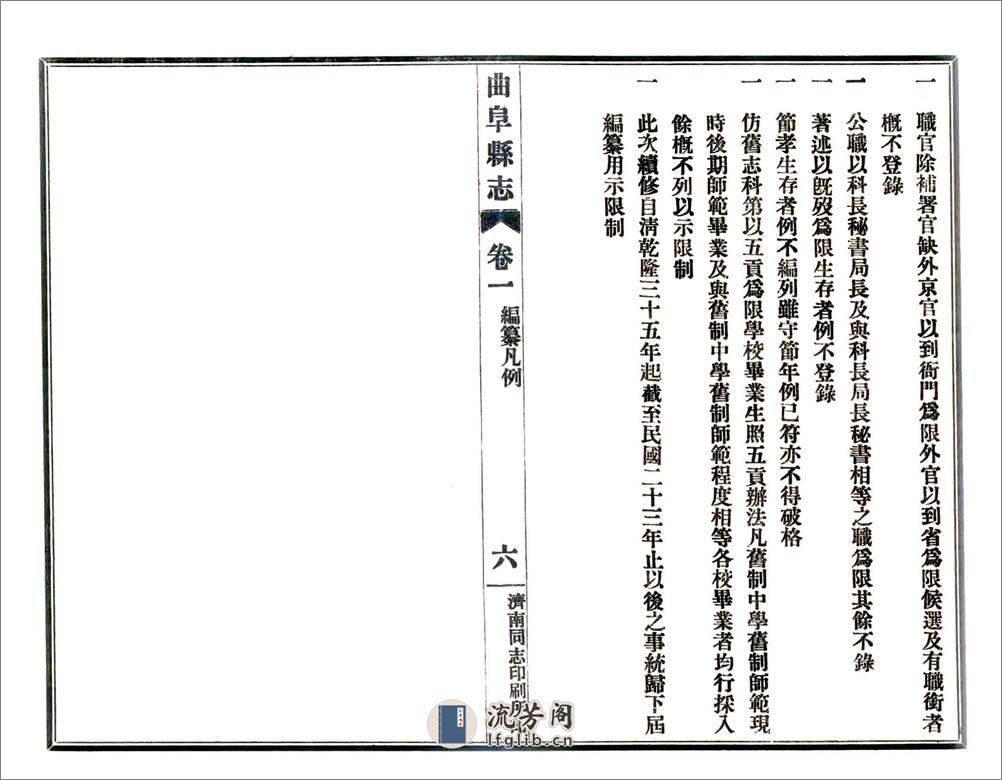 一 職官除補署官缺外京官以到衙門爲限外官以到省爲限候選及有職銜者
概不登錄
一 公職以科長秘書局長及與科長局長秘書相等之職爲限其餘不錄
一 著述以旣歿爲限生存者例不登錄
一 節孝生存者例不編列雖守節年例已符亦不得破格
一 仿舊志科第以五貢爲限學校畢業生照五貢辦法凡舊制中學舊制師範現
時後期師範畢業及與舊制中學舊制師範程度相等各校畢業者均行採入
餘概不列以示限制
一 此次續修自淸乾隆三十五年起截至民國二十三年止以後之事統歸下屆
編纂用示限制
曲阜縣志 卷一 編纂凡例 六 濟南同志印刷所
流芳阁
lfglib.cn